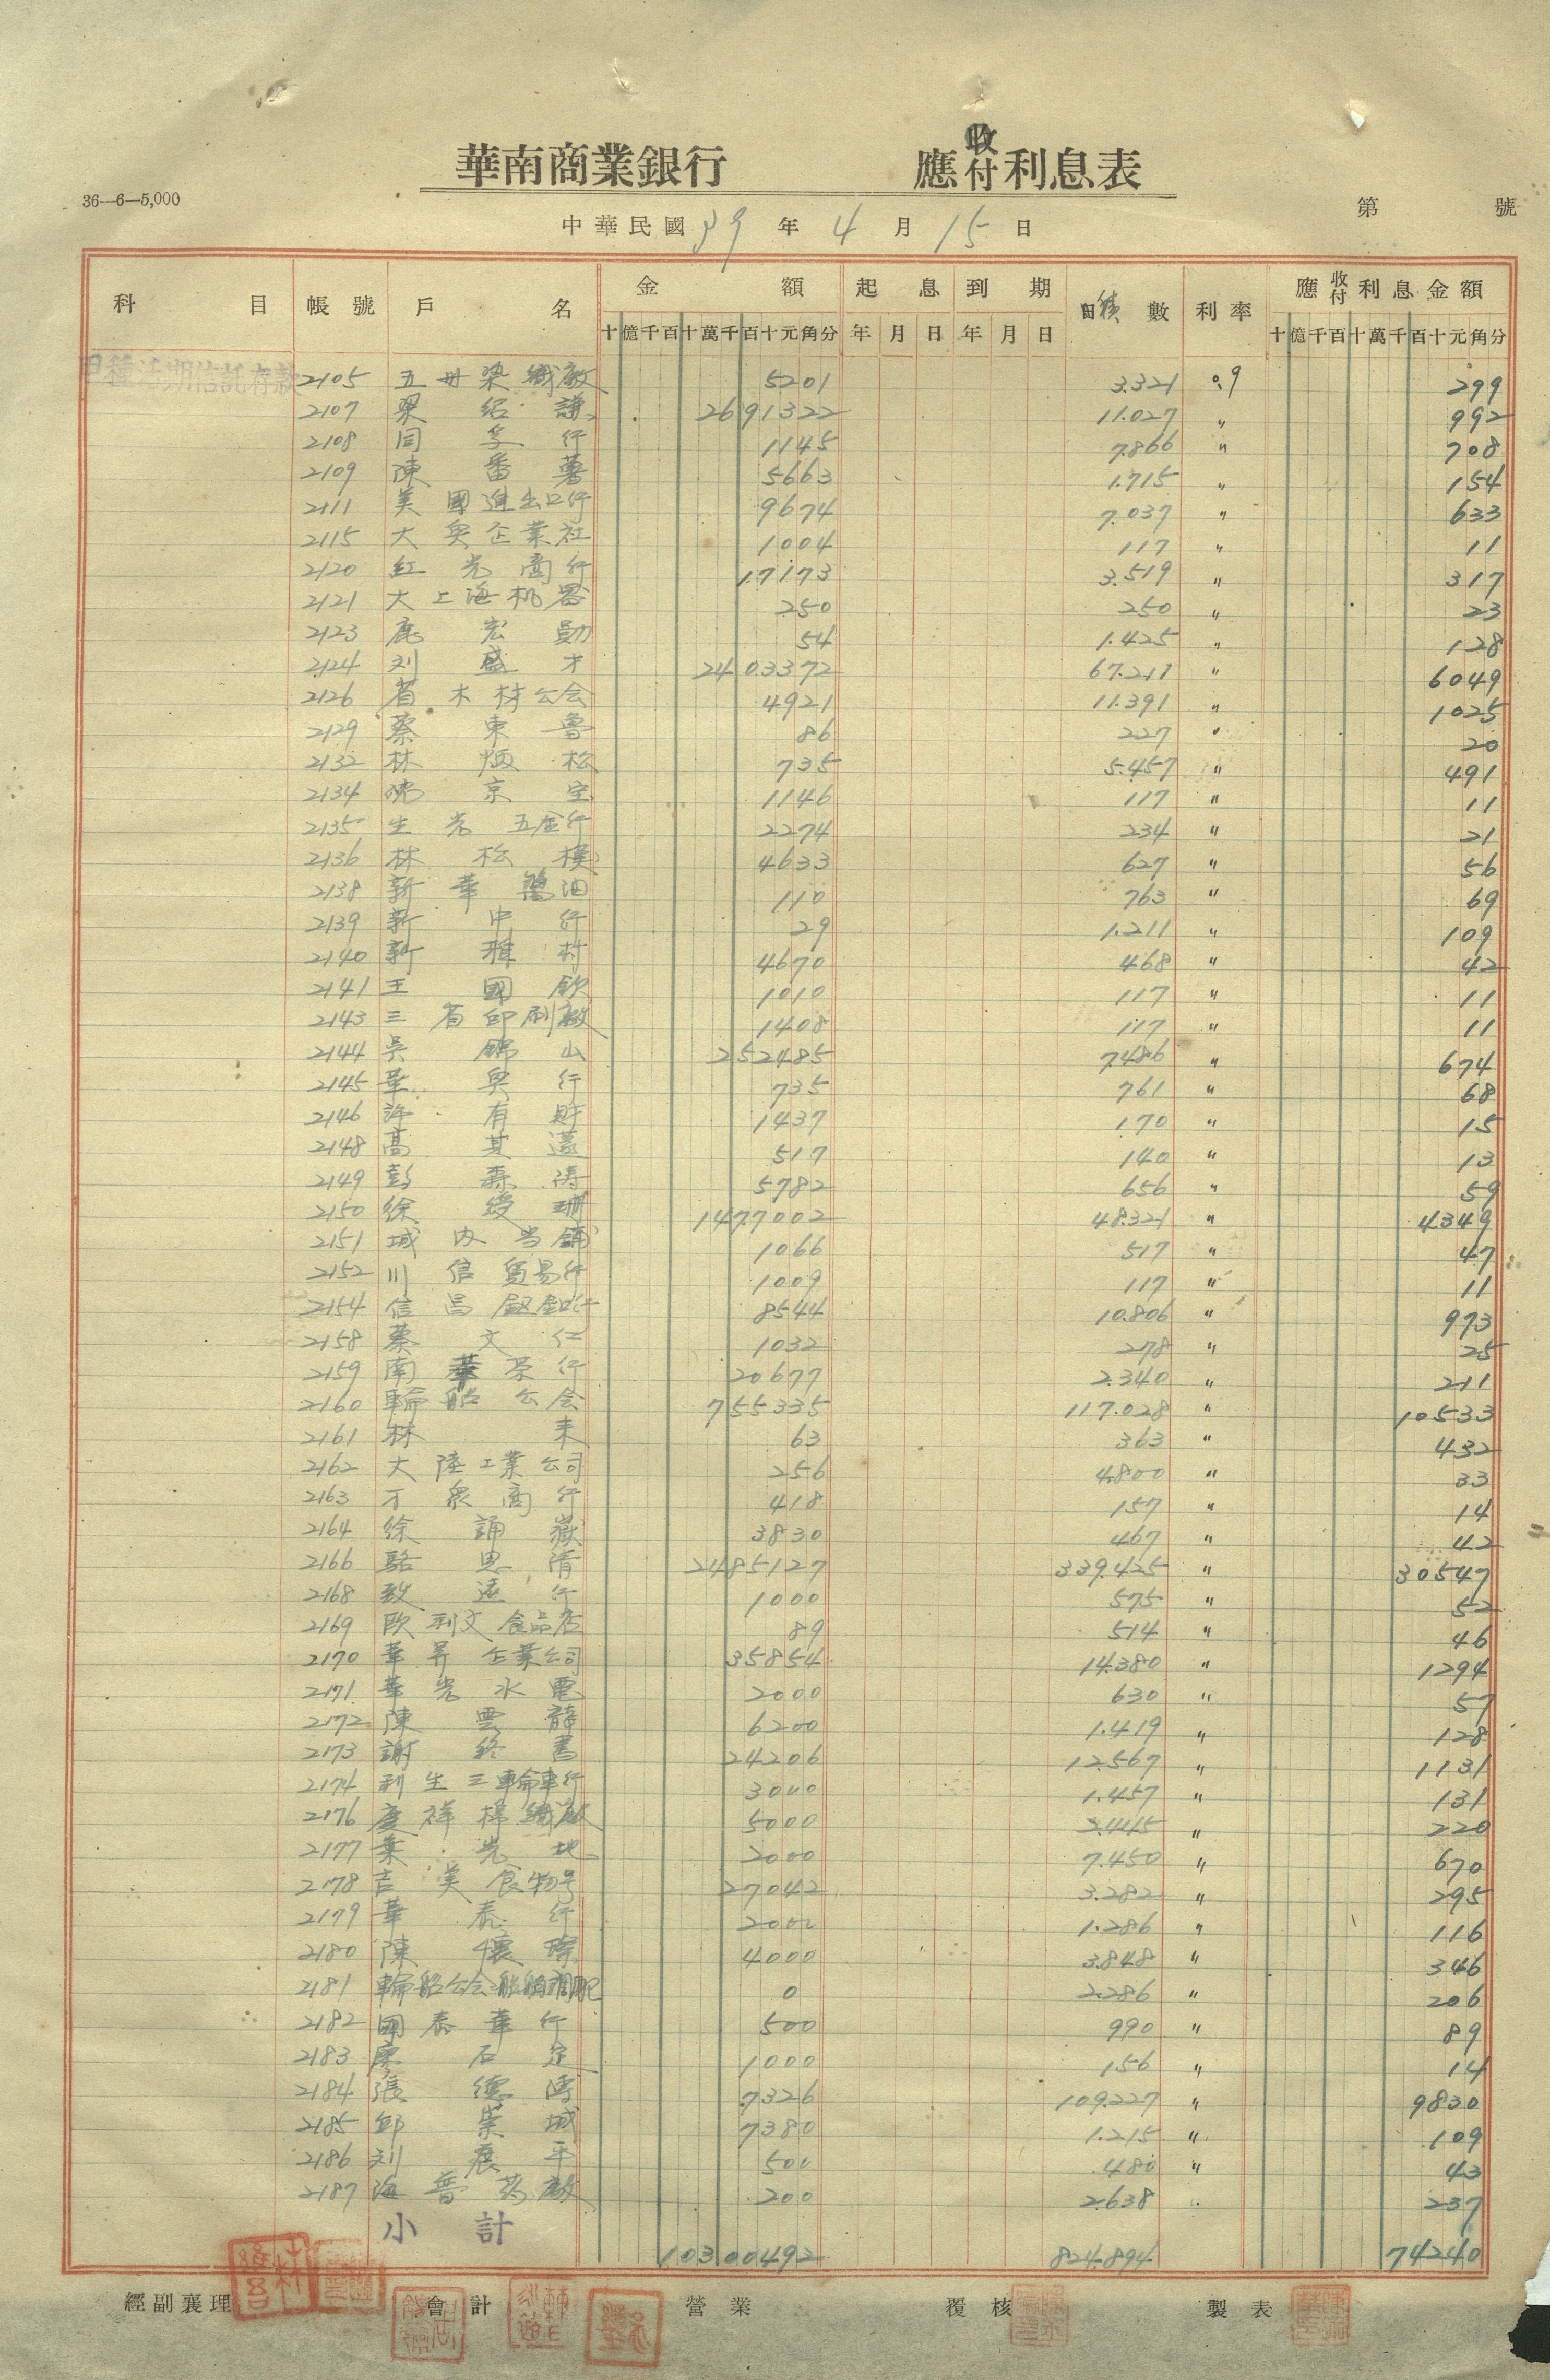 華南商業銀行 應收付利息表
36—6—5,000
第 號
中華民國 39 年 4 月 15 日
科目 帳號 戶名 金額 起息 到期 日積數 利率 應收付利息金額
十億千百十萬千百十元角分 年 月 日 年 月 日 十億千百十萬千百十元角分
甲種活期信託存款 2105 五卅染織廠 5201 3.321 0.9 299
2107 梁紹謙 2691322 11.027 〃 992
2108 同孚行 1145 7.866 〃 708
2109 陳番薯 5663 1.715 〃 154
2111 美國進出口行 9674 7.037 〃 633
2115 大奧企業社 1004 117 〃 11
2120 紅光商行 17173 3.519 〃 317
2121 大上海机器 250 250 〃 23
2123 鹿宏勛 54 1.425 〃 128
2124 刘盛才 2403372 67.211 〃 6049
2126 省木材公会 4921 11.391 〃 1025
2129 蔡東魯 86 227 〃 20
2132 林炳松 735 5.457 〃 491
2134 京 1146 117 〃 11
2135 生光五金行 2274 234 〃 21
2136 林松模 4633 627 〃 56
2138 新華醬油 110 763 〃 69
2139 新中行 29 1.211 〃 109
2140 新雅村 4670 468 〃 42
2141 王國欽 1010 117 〃 11
2143 三省印刷廠 1408 117 〃 11
2144 吳錦山 252485 7.486 〃 674
2145 華奧行 735 761 〃 68
2146 許有財 1437 170 〃 15
2148 高其 517 140 〃 13
2149 彭森濤 5782 656 〃 59
2150 徐綬珊 1477002 48.321 〃 4349
2151 城內当舖 1066 517 〃 47
2152 川信貿易行 1009 117 〃 11
2154 信昌銀行 8544 10.806 〃 973
2158 蔡文仁 1032 278 〃 25
2159 南華茶行 20677 2.340 〃 211
2160 輪船公会 755335 117.028 〃 10533
2161 林耒 63 363 〃 432
2162 大陸工業公司 256 4.800 〃 33
2163 才衆商行 418 157 〃 14
2164 徐誦嶽 3830 467 〃 42
2166 駱思清 2485127 339.425 〃 30547
2168 致遠行 1000 575 〃 52
2169 歐利文食品店 89 514 〃 46
2170 華昇企業公司 35854 14.380 〃 1294
2171 華光水電 2000 630 〃 57
2172 陳雲龍 6200 1.419 〃 128
2173 謝終書 24206 12.567 〃 1131
2174 利生三輪車行 3000 1.457 〃 131
2176 慶祥棉織廠 5000 2.445 〃 220
2177 葉光地 2000 7.450 〃 670
2178 吉美食物号 27042 3.282 〃 295
2179 華泰行 2000 1.286 〃 116
2180 陳懷璨 4000 3.848 〃 346
2181 輪船公会船舶 0 2.286 〃 206
2182 國泰華行 500 990 〃 89
2183 廖石定 1000 156 〃 14
2184 張德溥 7326 109.227 〃 9830
2185 邱崇城 7380 1.215 〃 109
2186 刘震平 500 480 〃 43
2187 海普葯廠 200 2.638 〃 237
小計 10300492 824.894 74240
經副襄理 會計 營業 覆核 製表